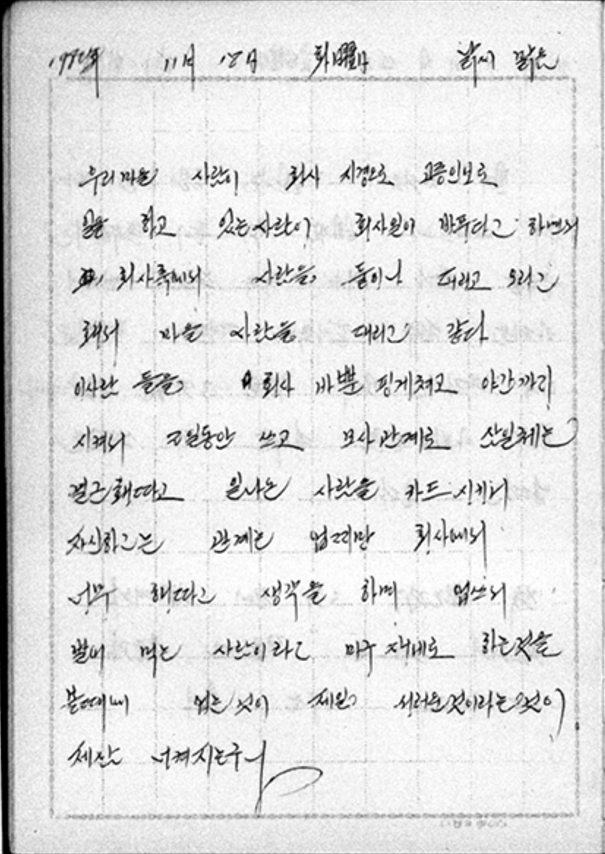 11月 12日 날씨 맑음
우리마을 사람이 회사 지경으로 고증인보로
일을 하고 있는사람이 회사원이 바뿌다고 하면서
회사측에서 사람을 둘이나 대리고 오라고
해서 마을 사람을 대리고 갔다
이사람 들을 회사 바뿐 핑게처고 야간까지
시켜서 쓰고 모사관계로
결근해따고 일나온 사람을 카드 시키니
자신하고는 관계는 업지만 회사에서
너무 해따고 생각을 하며 업쓰니
벌어 먹는 사람이라고 마구 재비로 하는것을
볼때에 업는것이 제일 서러운것이라는것이
세산 너켜지는구나